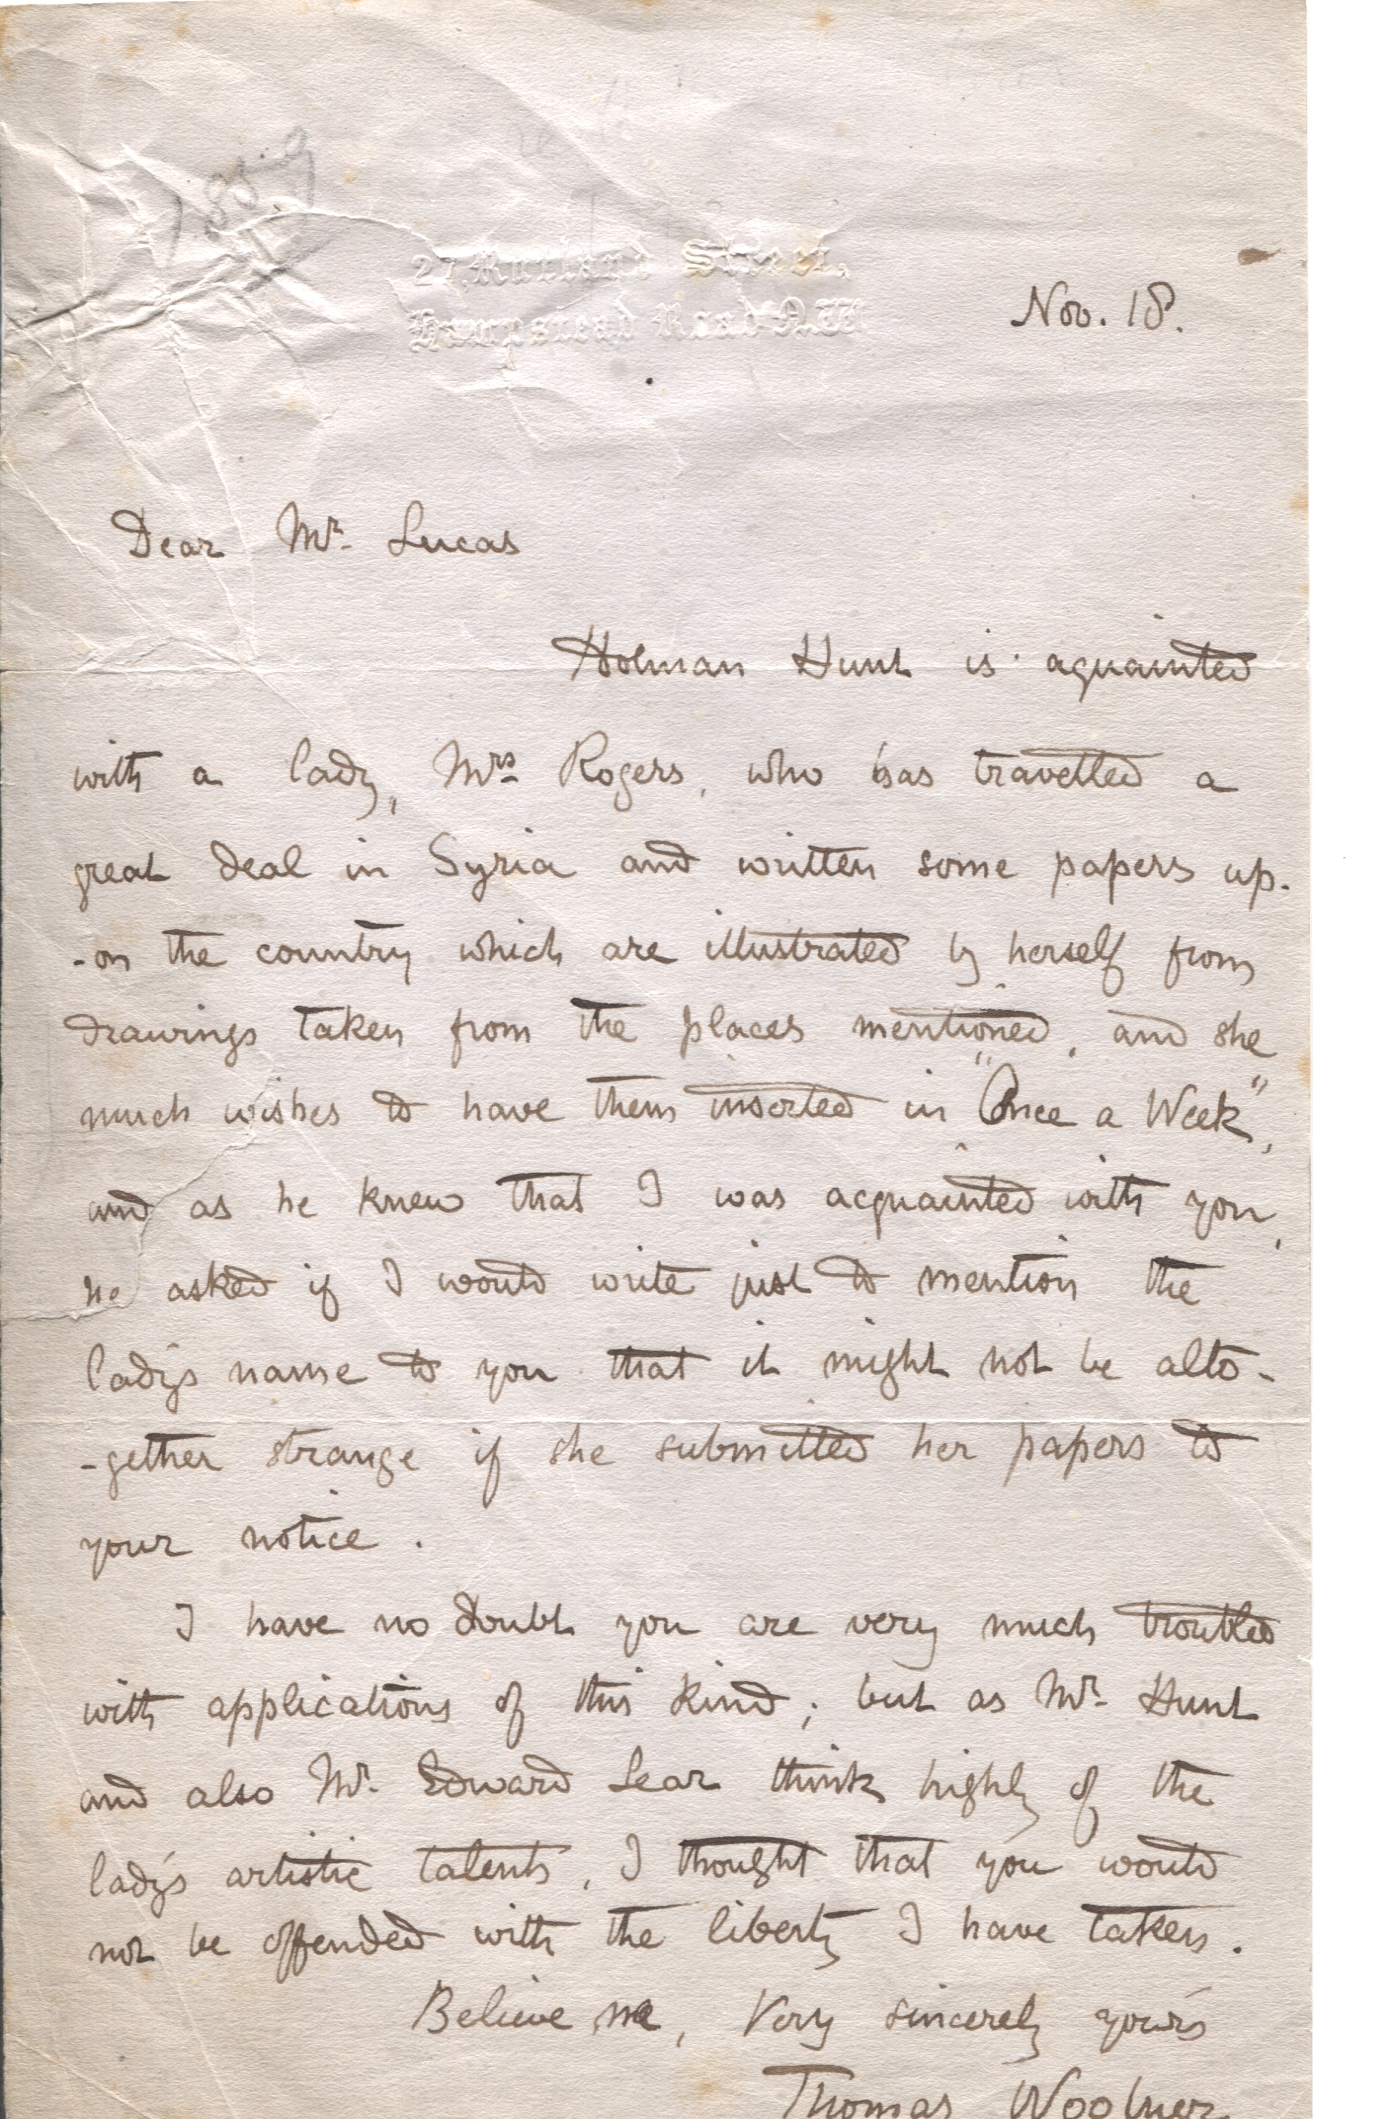 1859
27, Rutland Street,
Hampstead Road N.W.
Nov. 18.
Dear Mr. Lucas
Holman Hunt is aquainted
with a lady, Mrs Rogers, who has travelled a
great deal in Syria and written some papers up-
-on the country which are illustrated by herself from
drawings taken from the places mentioned, and she
much wishes to have them inserted in "Once a Week",
and as he knew that I was acquainted with you,
he asked if I would write just to mention the
lady's name to you that it might not be alto-
-gether strange if she submitted her papers to
your notice.
I have no doubt you are very much troubled
with applications of this kind; but as Mr. Hunt
and also Mr. Edward Lear think highly of the
lady's artistic talents, I thought that you would
not be offended with the liberty I have taken.
Believe me, Very sincerely yours
Thomas Woolner